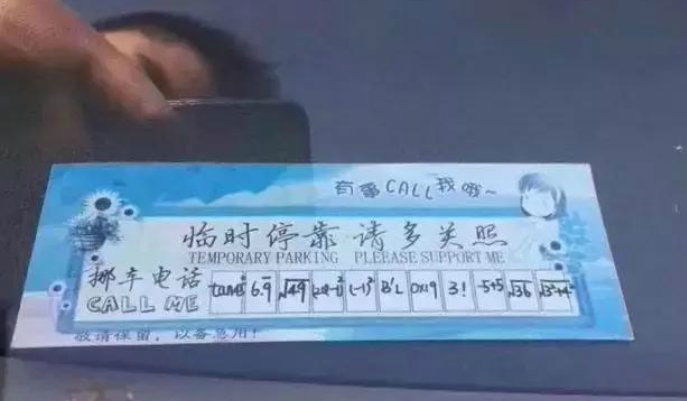 有事CALL我哦~
临时停靠·请多关照
TEMPORARY PARKING PLEEASE SUPPORT ME
挪车电话
CALL ME
6.9̄ √49 (-1)² 0x19 3! -5+5 √36
敬请保留，以备急用！